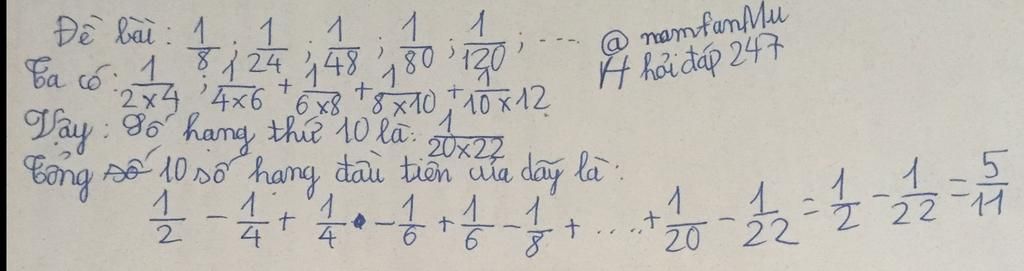 Đề bài: 1/8 ; 1/24 ; 1/48 ; 1/80 ; 1/120 ; ....
@ namfanMu
H hỏi đáp 247
Ta có: 1/2×4 ; 1/4×6 + 1/6×8 + 1/8×10 + 1/10×12
Vậy: Số hạng thứ 10 là: 1/20×22
Tổng số 10 số hạng đầu tiên của dãy là:
1/2 - 1/4 + 1/4 - 1/6 + 1/6 - 1/8 + ..... + 1/20 - 1/22 = 1/2 - 1/22 = 5/11